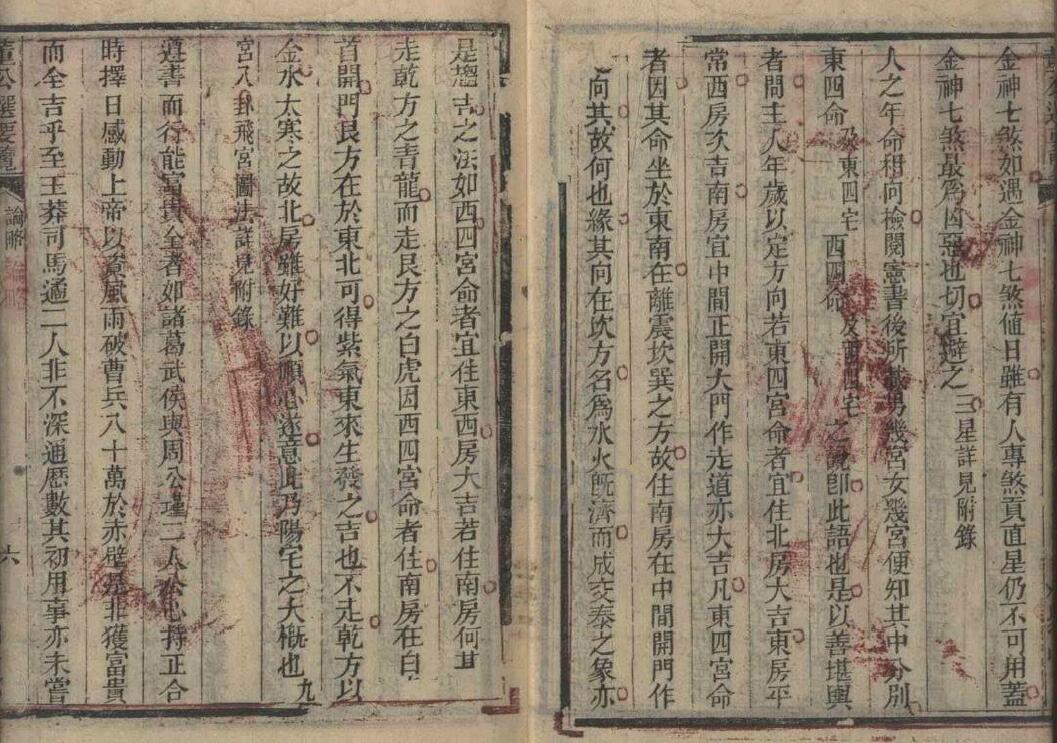 金神七煞如遇金神七煞値日雖有人專煞貢直星仍不可用蓋
金神七煞最爲凶惡也切宜避之三星詳見附錄
人之年命相向撿閱憲書後所載男幾宮女幾宮便知其中分別
東四命及東四宅西四命及西四宅之說卽此語也是以善堪輿
者問主人年歲以定方向若東四宮命者宜住北房大吉東房平
常西房次吉南房宜中間正開大門作走道亦大吉凡東四宮命
者因其命坐於東南在離震坎巽之方故住南房在中間開門作
向其故何也緣其向在坎方名爲水火旣濟而成交泰之象亦
是趨吉之法如西四宮命者宜住東西房大吉若住南房何其
走乾方之青龍而走艮方之白虎因西四宮命者住南房在白
首開門艮方在於東北可得紫氣東來生發之吉也不走乾方以
金水太寒之故北房雖好難以順心遂意此乃陽宅之大槪也九
宮八卦飛宮圖法詳見附錄
遵書而行能富貴全者如諸葛武侯與周公瑾二人公心持正合
時擇日感動上帝以資風雨破曹兵八十萬於赤壁是非獲富貴
而全吉乎至王莽司馬遹二人非不深通歷數其初用事亦未嘗
董公選要覽
論略
六